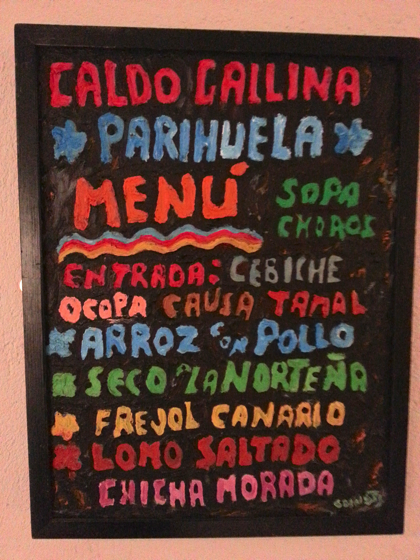 CALDO GALLINA
PARIHUELA
MENÚ
SOPA
CHOROS
ENTRADA: CEBICHE
OCOPA CAUSA TAMAL
ARROZ CON POLLO
SECO A LA NORTEÑA
FREJOL CANARIO
LOMO SALTADO
CHICHA MORADA